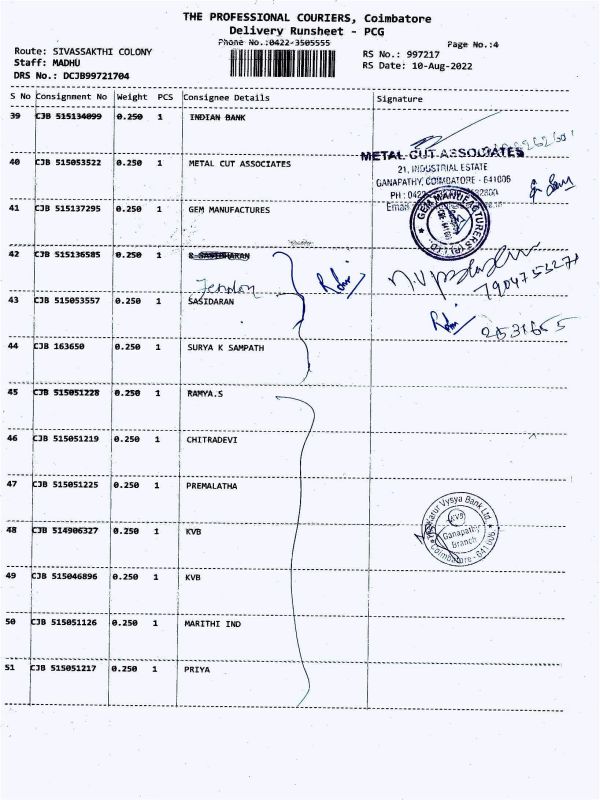 THE PROFESSIONAL COURIERS, Coimbatore
Delivery Runsheet - PCG
Phone No.:0422-3505555
Page No.:4
Route: SIVASSAKTHI COLONY
RS No.: 997217
Staff: MADHU
RS Date: 10-Aug-2022
DRS No.: DCJB99721704
S No Consignment No Weight PCS Consignee Details Signature
39 CJB 515134099 0.250 1 INDIAN BANK
40 CJB 515053522 0.250 1 METAL CUT ASSOCIATES
METAL CUT ASSOCIATES
21, INDUSTRIAL ESTATE
GANAPATHY, COIMBATORE - 641006
41 CJB 515137295 0.250 1 GEM MANUFACTURES
GEM MANUFACTURERS (P) LTD.
42 CJB 515136585 0.250 1
7904753271
43 CJB 515053557 0.250 1 SASIDARAN
2531655
44 CJB 163650 0.250 1 SURYA K SAMPATH
45 CJB 515051228 0.250 1 RAMYA.S
46 CJB 515051219 0.250 1 CHITRADEVI
47 CJB 515051225 0.250 1 PREMALATHA
The Karur Vysya Bank Ltd.
KVB
Ganapathy
Branch
Coimbatore - 641006
48 CJB 514906327 0.250 1 KVB
49 CJB 515046896 0.250 1 KVB
50 CJB 515051126 0.250 1 MARITHI IND
51 CJB 515051217 0.250 1 PRIYA